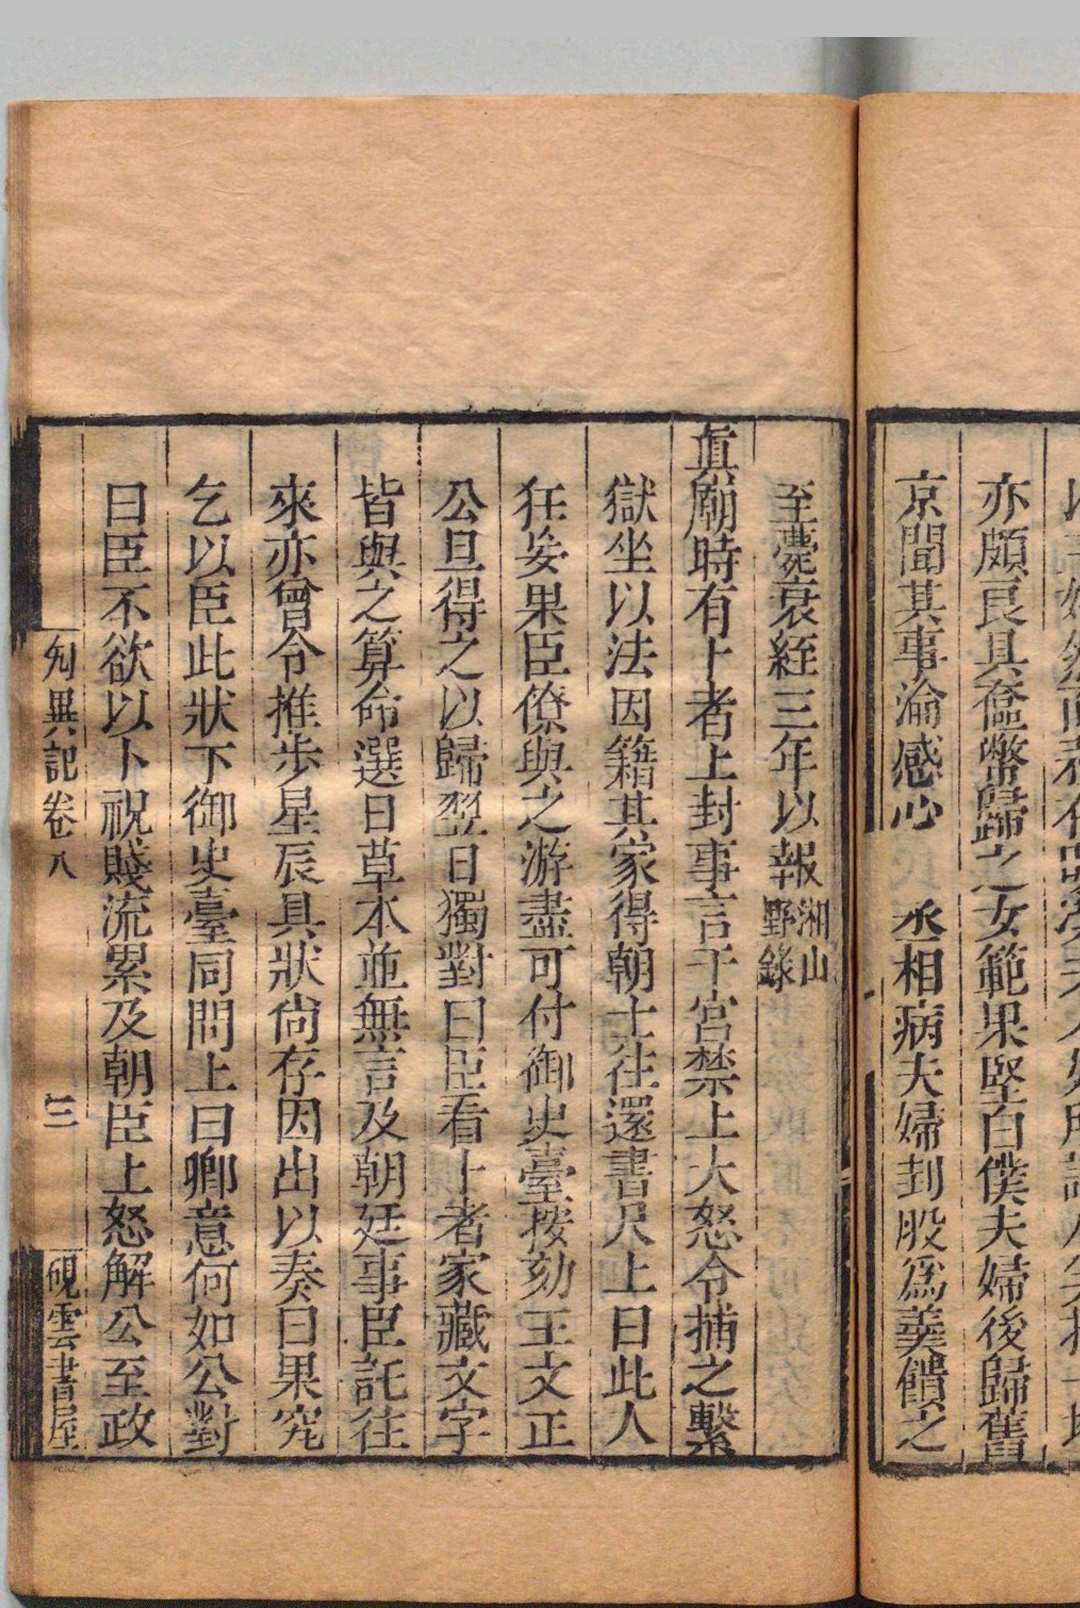 亦頗良具奩幣歸之女範果堅白僕夫婦後歸舊
京聞其事淪感心 丞相病夫婦刲股爲羹饋之
至薨衰絰三年以報 湘山野錄
眞廟時有卜者上封事言干宮禁上大怒令捕之繫
獄坐以法因籍其家得朝士往還書尺上曰此人
狂妄果臣僚與之游盡可付御史臺按劾王文正
公旦得之以歸翌日獨對曰臣看卜者家藏文字
皆與之算命選日草本並無言及朝廷事臣託往
來亦曾令推步星辰具狀尚存因出以奏曰果究
乞以臣此狀下御史臺同問上曰卿意何如公對
曰臣不欲以卜祝賤流累及朝臣上怒解公至政
異記卷八 三 硯雲書屋